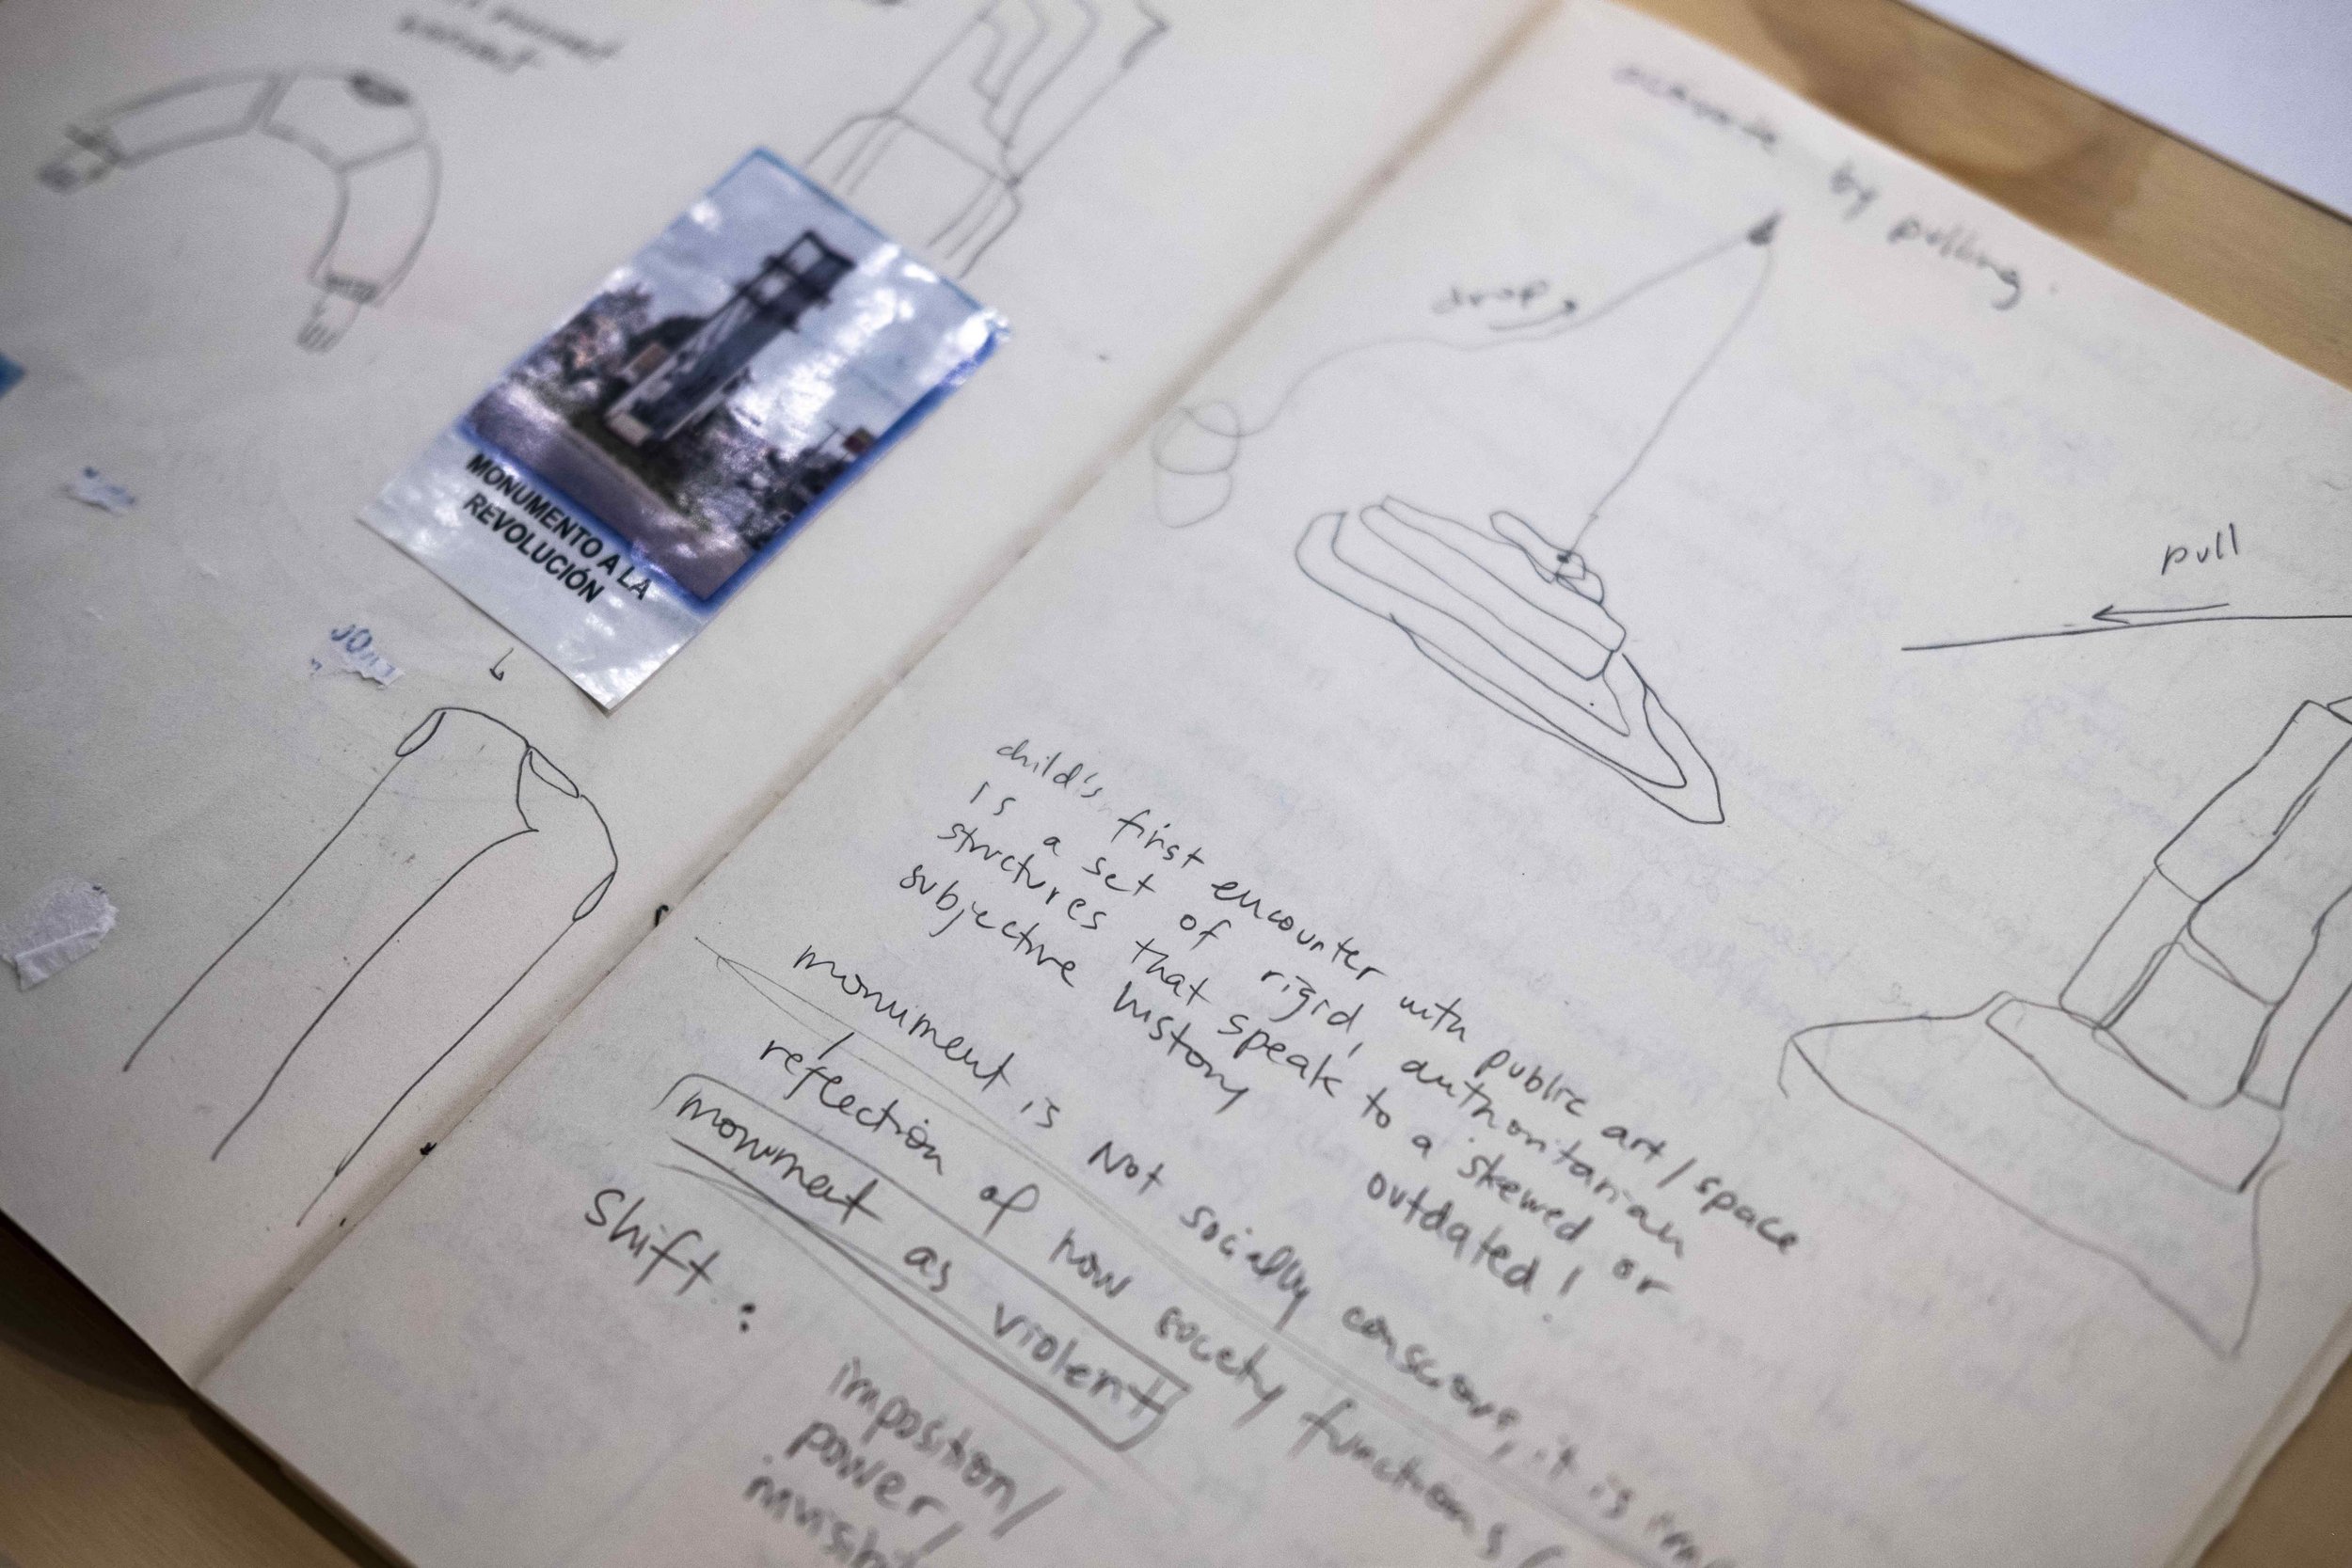 MONUMENTO A LA
REVOLUCIÓN
by pulling.
drop
pull
child's first encounter with public art/space
is a set of rigid, authoritarian
structures that speak to a skewed or
subjective history outdated!
monument is Not socially conscious, it is
reflection of how society functions/
monument as violent
Shift:
imposition/
power/